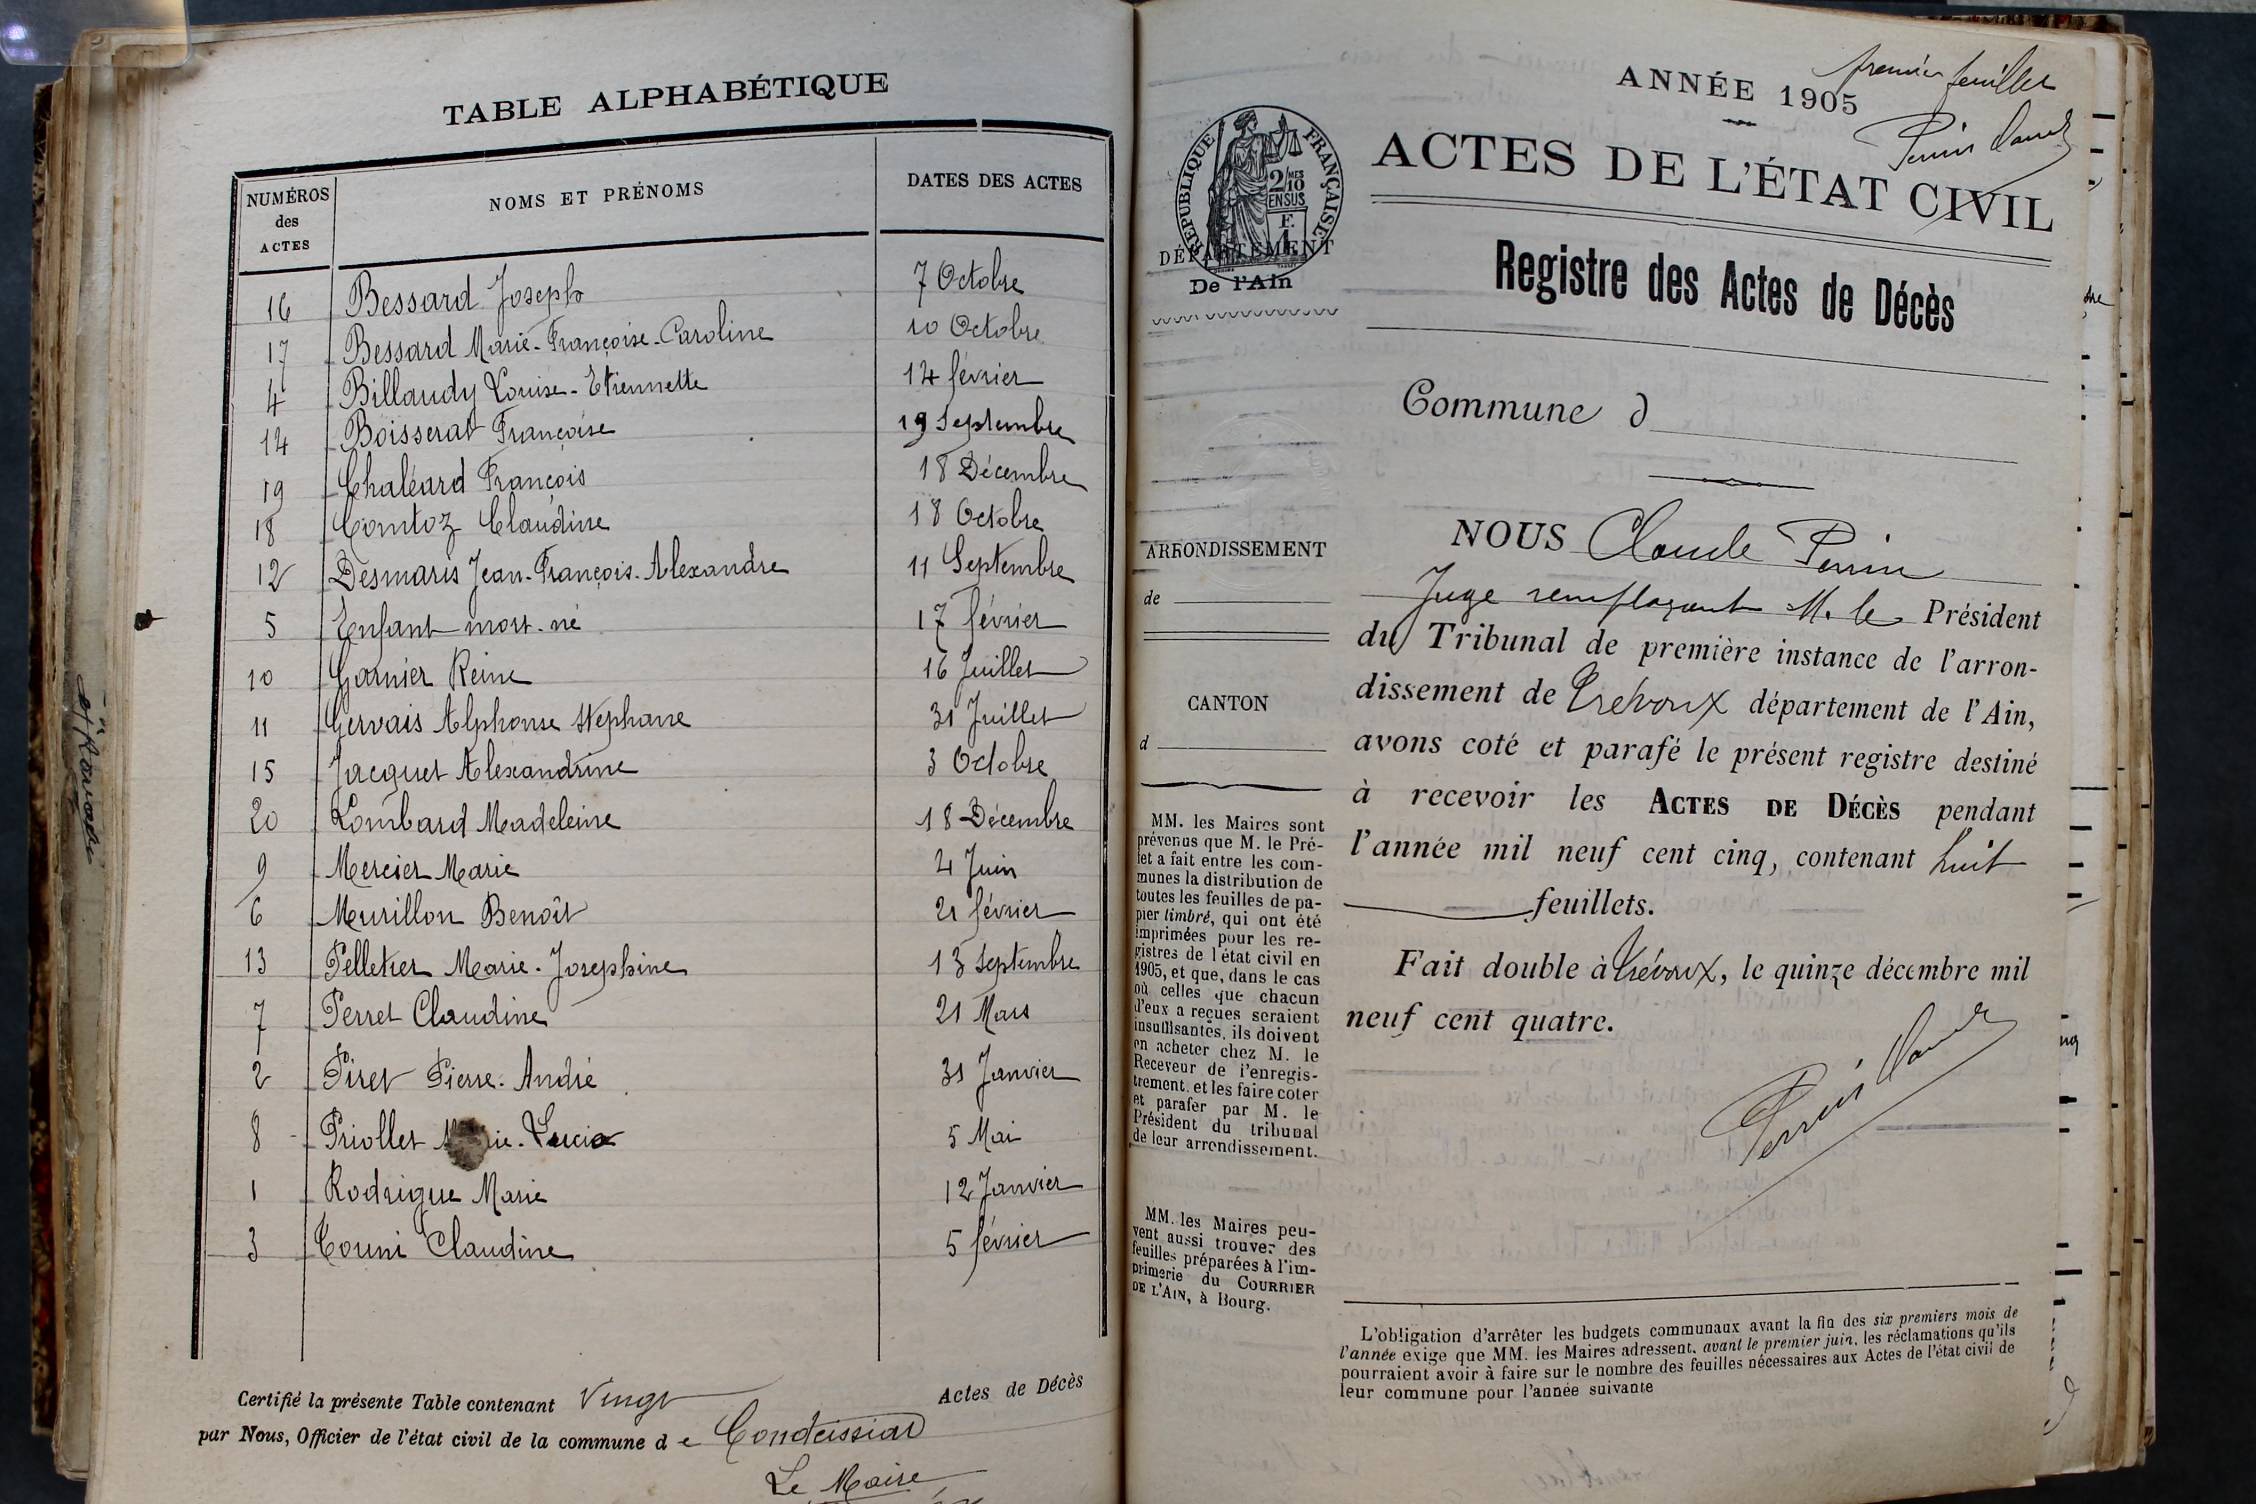 TABLE ALPHABÉTIQUE
NUMÉROS des ACTES NOMS ET PRÉNOMS DATES DES ACTES
16 Bessard Joseph 7 Octobre
17 Bessard Marie-Françoise-Caroline 10 Octobre
4 Billaudy Louise-Etiennette 14 février
14 Boisserat Françoise 19 Septembre
19 Chaléard François 18 Décembre
18 Comtoz Claudine 18 Octobre
12 Desmaris Jean-François-Alexandre 11 Septembre
5 Enfant mort-né 17 février
10 Garnier Reine 16 Juillet
11 Gervais Alphonse Stéphane 31 Juillet
15 Jacquet Alexandrine 3 Octobre
20 Lombard Madeleine 18 Décembre
9 Mercier Marie 4 Juin
6 Murillon Benoît 21 février
13 Pelletier Marie-Josephine 13 Septembre
7 Perret Claudine 21 Mars
2 Piret Pierre-André 31 Janvier
8 Priollet Marie-Lucie 5 Mai
1 Rodrigue Marie 12 Janvier
3 Touni Claudine 5 février
Certifié la présente Table contenant Vingt Actes de Décès
par Nous, Officier de l'état civil de la commune de Condeissiat
Le Maire
premier feuillet
Perrin Claude
ANNÉE 1905
ACTES DE L'ÉTAT CIVIL
RÉPUBLIQUE FRANÇAISE
2/10 MES
EN SUS
F.
1
DÉPARTEMENT
De l'Ain
Registre des Actes de Décès
Commune d
ARRONDISSEMENT
de
CANTON
d
NOUS Claude Perrin
Juge remplaçant M. le Président
du Tribunal de première instance de l'arron-
dissement de Trévoux département de l'Ain,
avons coté et parafé le présent registre destiné
à recevoir les ACTES DE DÉCÈS pendant
l'année mil neuf cent cinq, contenant huit
feuillets.
Fait double à Trévoux, le quinze décembre mil
neuf cent quatre.
Perrin Claude
MM. les Maires sont
prévenus que M. le Pré-
fet a fait entre les com-
munes la distribution de
toutes les feuilles de pa-
pier timbré, qui ont été
imprimées pour les re-
gistres de l'état civil en
1905, et que, dans le cas
où celles que chacun
d'eux a reçues seraient
insuffisantes, ils doivent
en acheter chez M. le
Receveur de l'enregis-
trement, et les faire coter
et parafer par M. le
Président du tribunal
de leur arrondissement.
MM. les Maires peu-
vent aussi trouver des
feuilles préparées à l'im-
primerie du COURRIER
DE L'AIN, à Bourg.
L'obligation d'arrêter les budgets communaux avant la fin des six premiers mois de
l'année exige que MM. les Maires adressent, avant le premier juin, les réclamations qu'ils
pourraient avoir à faire sur le nombre des feuilles nécessaires aux Actes de l'état civil de
leur commune pour l'année suivante